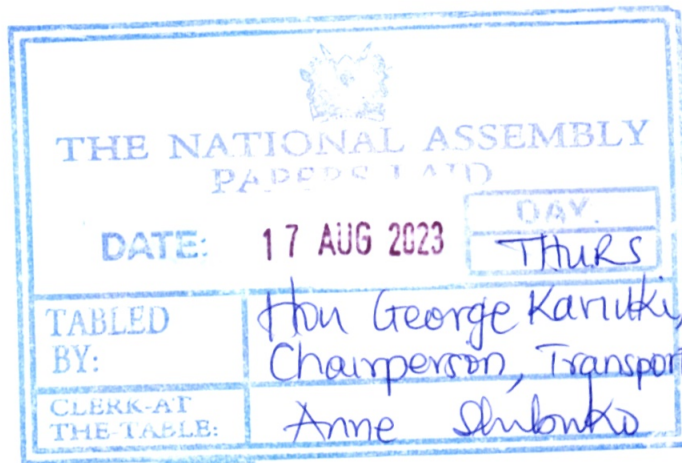 THE NATIONAL ASSEMBLY
PAPERS LAID
DATE: 17 AUG 2023
DAY.
THURS
TABLED BY:
Hon George Kariuki,
Chairperson, Transport
CLERK-AT THE-TABLE:
Anne